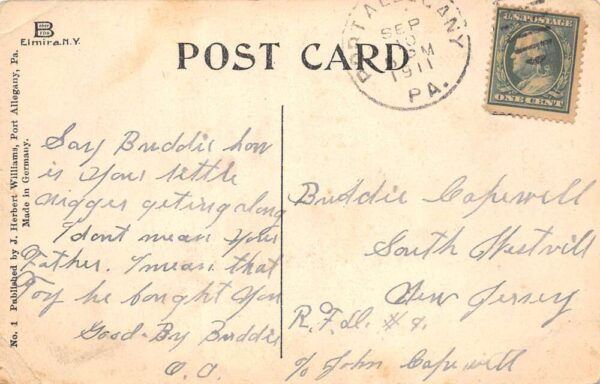 B
Elmira N.Y.
POST CARD
PORT ALLEGANY
SEP
M
1911
PA.
U.S. POSTAGE
ONE CENT
No. 1 Published by J. Herbert Williams, Port Allegany, Pa.
Made in Germany.
Say Buddie how
is your little
digger geting along
I dont mean your
Father. I mean that
Toy he bought you
Good-By Buddie
O.O.
Buddie Capewell
South Westvill
New Jersey
R.F.D. #1.
c/o John Capewell